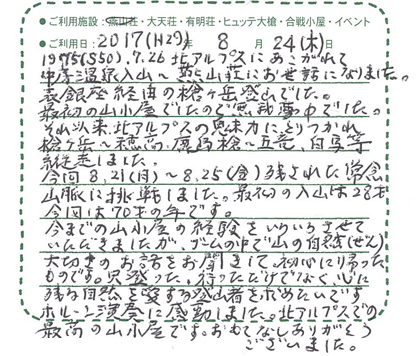 ●ご利用施設：燕山荘・大天荘・有明荘・ヒュッテ大槍・合戦小屋・イベント
●ご利用日：2017(H29)年 8月24(木)日
1975(S50).7.26 北アルプスにあこがれて
中房温泉入山〜燕山荘にお世話になりました。
表銀座経由の槍ヶ岳登山でした。
最初の山小屋でしたので無我夢中でした。
それ以来、北アルプスの魅力に、とりつかれ
槍ヶ岳〜穂高、鹿島槍〜五竜、白馬等
縦走しました。
今回8.21(月)〜8.25(金)残された常念
山脈に挑戦しました。最初の入山は28才
今回は70才の年です。
今までの山小屋の経験をいろいろさせて
いただきましたが、の中で山の自然(ぜん)
大切さのお話をお聞きして、初心に帰った
ものです。只登った、行っただけでなく、心に
残る自然を愛する登山者を求めたいです
ホルーン演奏に感動しました。北アルプスでの
最高の山小屋です。おもてなしありがとう
ございました。